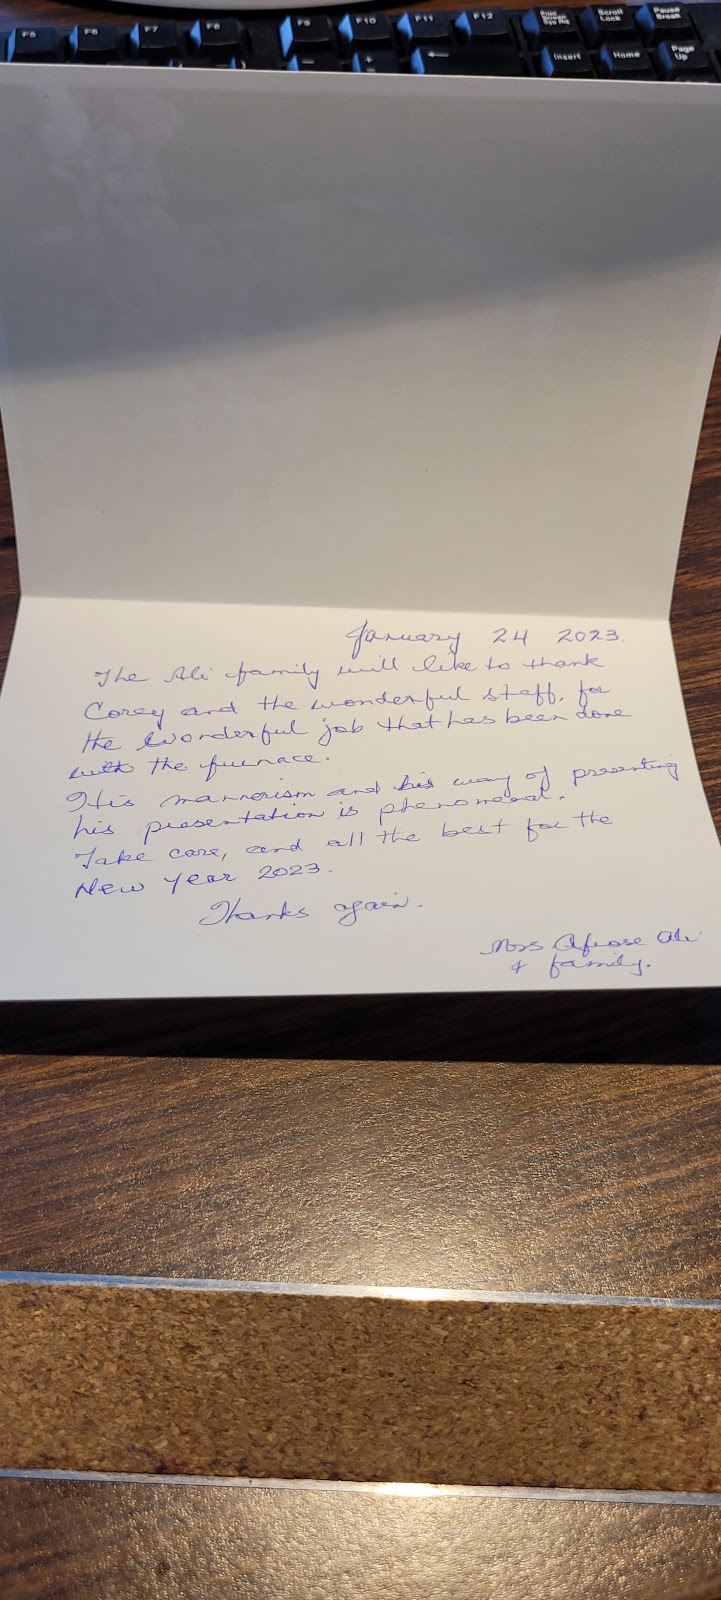 F5 F6 F7 F8 F9 F10 F11 F12 Print Screen Sys Rq Scroll Lock Pause Break
Insert Home Page Up
January 24 2023.
The Ali family will like to thank
Corey and the wonderful staff, for
the wonderful job that has been done
with the furnace.
His mannerism and his way of presenting
his presentation is phenomenal.
Take care, and all the best for the
New Year 2023.
Thanks again.
Mrs Afrose Ali
& family.